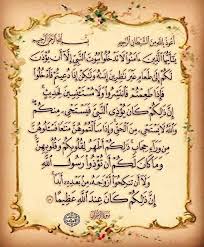 أعوذ بالله من الشيطان الرجيم بسم الله الرحمن الرحيم
يَٰٓأَيُّهَا ٱلَّذِينَ ءَامَنُوا۟ لَا تَدْخُلُوا۟ بُيُوتَ ٱلنَّبِىِّ إِلَّآ أَن يُؤْذَنَ
لَكُمْ إِلَىٰ طَعَامٍ غَيْرَ نَٰظِرِينَ إِنَىٰهُ وَلَٰكِنْ إِذَا دُعِيتُمْ فَٱدْخُلُوا۟
فَإِذَا طَعِمْتُمْ فَٱنتَشِرُوا۟ وَلَا مُسْتَـْٔنِسِينَ لِحَدِيثٍ
إِنَّ ذَٰلِكُمْ كَانَ يُؤْذِى ٱلنَّبِىَّ فَيَسْتَحْىِۦ مِنكُمْ
وَٱللَّهُ لَا يَسْتَحْىِۦ مِنَ ٱلْحَقِّ وَإِذَا سَأَلْتُمُوهُنَّ مَتَٰعًا فَسْـَٔلُوهُنَّ
مِن وَرَآءِ حِجَابٍ ذَٰلِكُمْ أَطْهَرُ لِقُلُوبِكُمْ وَقُلُوبِهِنَّ
وَمَا كَانَ لَكُمْ أَن تُؤْذُوا۟ رَسُولَ ٱللَّهِ
وَلَآ أَن تَنكِحُوٓا۟ أَزْوَٰجَهُۥ مِنۢ بَعْدِهِۦٓ أَبَدًا
إِنَّ ذَٰلِكُمْ كَانَ عِندَ ٱللَّهِ عَظِيمًا